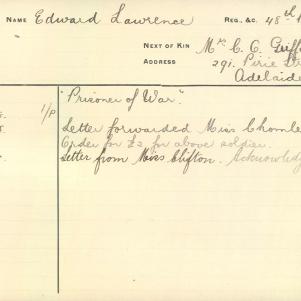 NAME Edward Lawrence REG. &C. 48th
NEXT OF KIN Mrs C. C. Griff
ADDRESS 291. Pirie St
Adelaide
"Prisoner of War."
1/P Letter forwarded Miss Chomle
Order for £2 for above soldier.
Letter from Miss Clifton. Acknowledg